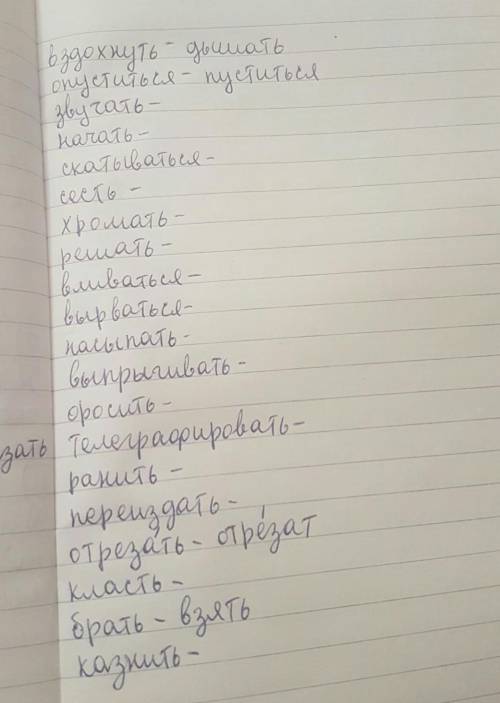 вздохнуть - дышать
опуститься - пуститься
звучать -
начать -
скатываться -
сесть -
хромать -
решать -
вливаться -
вырваться -
насыпать -
выпрыгивать -
оросить -
зать телеграфировать -
ранить -
переиздать -
отрезать - отре́зат
класть -
брать - взять
казнить -